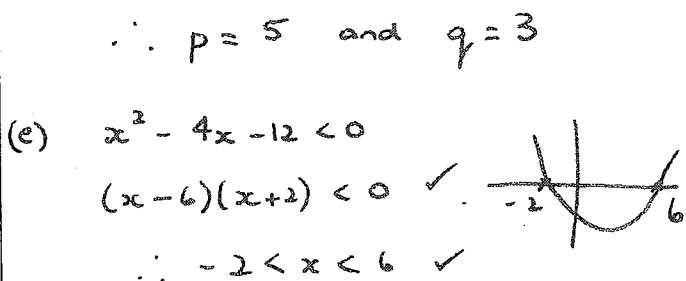 ∴ p = 5 and q = 3
(e) x² - 4x - 12 < 0
(x - 6)(x + 2) < 0 ✓.
-2 6
∴ -2 < x < 6 ✓